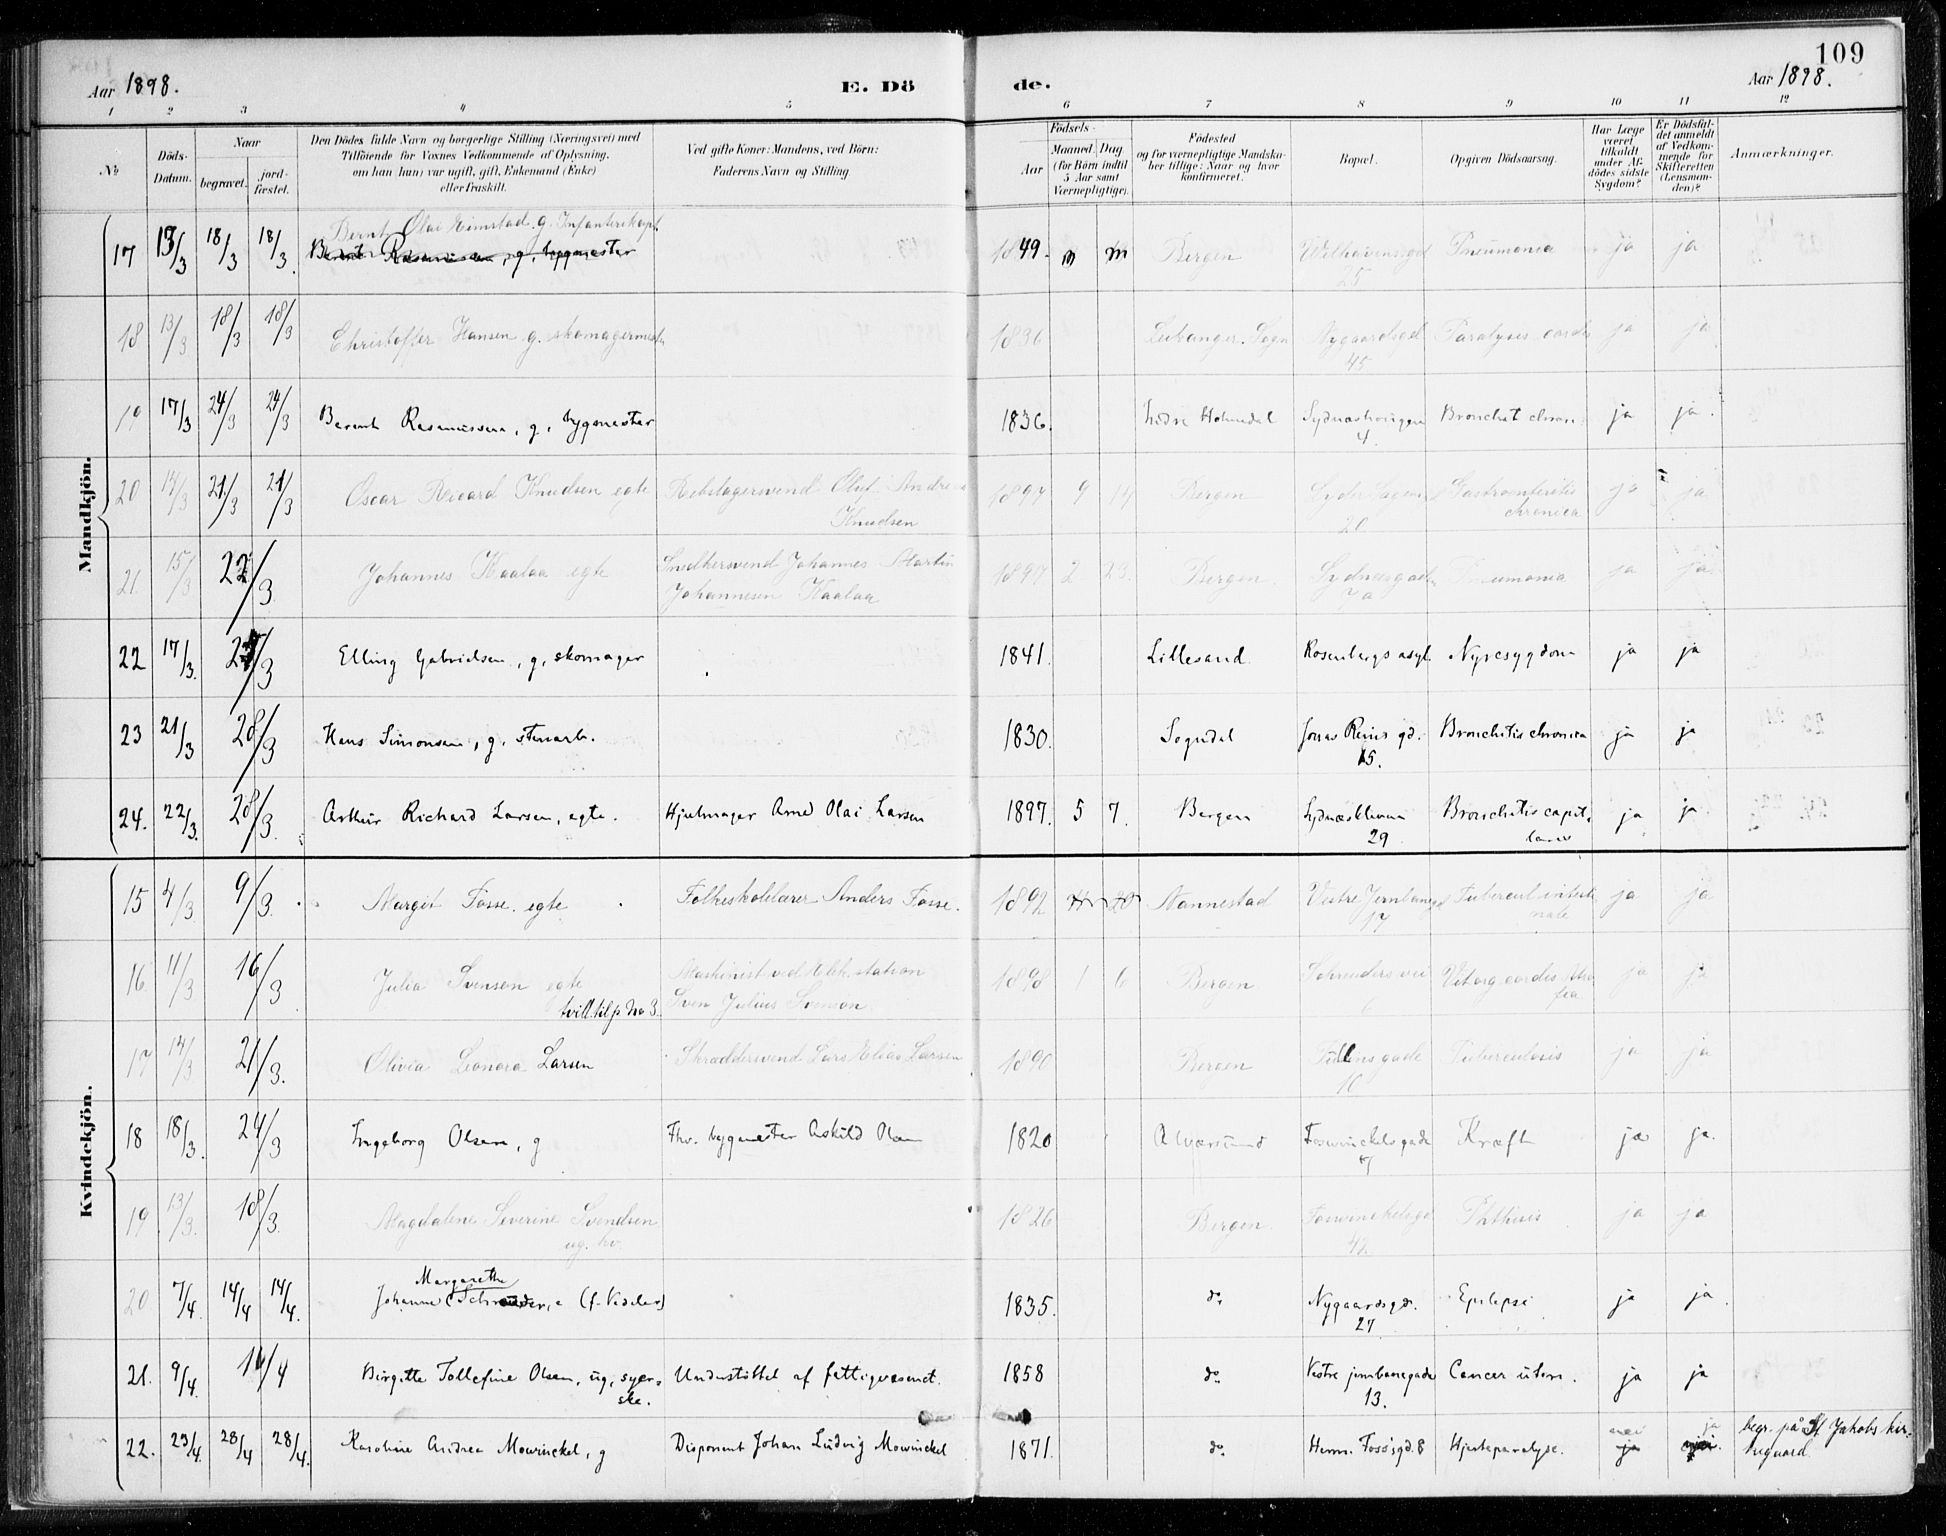 109
Aar 1898.
E. Dö
de.
Aar 1898.
1 2 3 4 5 6 7 8 9 10 11 12
No
Döds-Datum.
Naar
begravet.
jord-fæstet.
Den Dödes fulde Navn og borgerlige Stilling (Næringsvei) med
Tilföiende for Voxnes Vedkommende af Oplysning,
om han (hun) var ugift, gift, Enkemand (Enke)
eller fraskilt.
Ved gifte Koner: Mandens, ved Börn:
Faderens Navn og Stilling.
Födsels-
Aar
Maaned. Dag
(for Börn indtil
5 Aar samt
Værnepligtige).
Födested
og for værnepligtige Mandska-
ber tillige: Naar og hvor
konfirmeret.
Bopæl.
Opgiven Dödsaarsag.
Har Læge
været
tilkaldt
under Af-
dödes sidste
Sygdom?
Er Dödsfal-
det anmeldt
af Vedkom-
mende for
Skifteretten
(Lensman-
den)?
Anmærkninger.
Mandkjön.
Bernt Olai Rimstad g. Infanterikapt.
17 13/3 18/3 18/3 Berent Rasmussen, g, bygmester 1849. Bergen Welhavensgd 25 Pneumonia ja ja
18 13/3 18/3 18/3 Christoffer Hansen g. skomagermester 1836 Leikanger. Sogn Nygaardsgd 45 Paralysis cordis ja ja
19 17/3 24/3 24/3 Berent Rasmussen, g, bygmester 1836. Indre Holmedal Sydnæshaugen 4. Bronchit chron. ja ja.
20 14/3 21/3 21/3 Oscar Ricard Knudsen egte Rebslagersvend Oluf Andreas Knudsen 1897 9 14 Bergen 20 Gastroenteritis chronica ja ja
21. 15/3 22/3 Johannes Kaalaa egte Snedkersvend Johannes Martin Johannesen Kaalaa 1897 2 23. Bergen. Sydnesgade 7a Pneumonia ja ja
22 17/3 /3 Elling Gabrielsen, g, skomager 1841. Lillesand Rosenbergs asyl. Nyresygdom ja ja
23 21/3 28/3 Hans Simonsen, g, stenarb. 1830. Sogndal Jonas Reins gd. 15. Bronchitis chronica ja ja
24. 22/3 28/3. Arthur Richard Larsen, egte. Hjulmager Arne Olai Larsen 1897. 5 7. Bergen Sydnæskleven 29 Bronchitis capillaris ja ja
Kvindekjön.
15 4/3 9/3. Margit Fosse. egte Folkeskolelærer Anders Fosse. 1892 20 Nannestad Vestre Jernbanegd 17 Tubercul intestinale ja ja
16 11/3 16/3 Julia Svensen egte tvill. til p. No 3. Maskinist ved Elek. station Sven Julius Svenson 1898 1 6 Bergen Schreuders vei ja ja
17 14/3 21/3. Olivia Leonora Larsen Skræddersvend Lars Elias Larsen 1890 Bergen Tullinsgade 10 Tuberculosis ja ja
18 18/3. 24/3 Ingeborg Olsen, g Fhv. bygmester Askild Olsen 1820 Alværsund Fosswinckelsgade Kræft ja ja.
19 13/3. 18/3. Magdalene Severine Svendsen ug. 1826 Bergen. Foswinckelsgd 42 Phthisis ja ja
20 7/4. 14/4 14/4. Johanne Margarethe Schrøder, e (f. Vedeler) 1835. do Nygaardsgd. 27 Epilepsi ja ja
21. 9/4. 14/4 Birgitte Tollefine Olsen, ug, syerske. Understöttet af fattigvæsenet. 1858 do Vestre jernbanegade 13. Cancer uteri. ja ja
22. 23/4. 28/4 28/4. Karoline Andrea Mowinckel, g Disponent Johan Ludvig Mowinckel 1871. do Herm. Fossgd. 8 Hjerteparalyse. nei ja ja nei. begr. på St Jakobs kirkegaard.